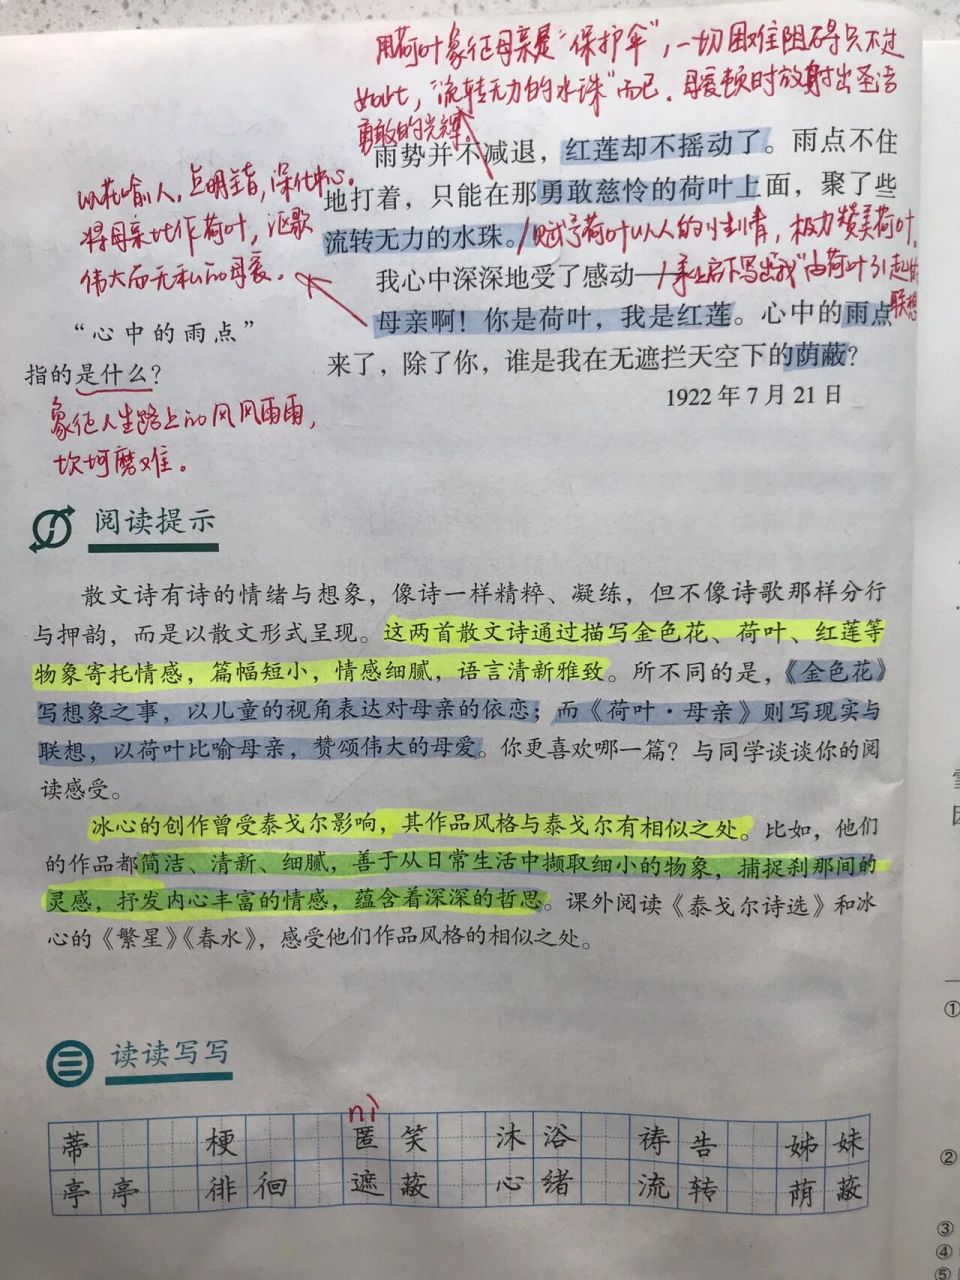 用荷叶象征母亲是“保护伞”，一切困难阻碍只不过
如此，“流转无力的水珠”而已．母爱顿时放射出圣洁
勇敢的光辉
雨势并不减退，红莲却不摇动了。雨点不住
地打着，只能在那勇敢慈怜的荷叶上面，聚了些
流转无力的水珠。/赋予荷叶以人的性情，极力赞美荷叶．
我心中深深地受了感动——/承上启下写出“我”由荷叶引起的
联想
母亲啊！你是荷叶，我是红莲。心中的雨点
来了，除了你，谁是我在无遮拦天空下的荫蔽？
1922年7月21日
以花喻人，点明主旨，深化中心。
将母亲比作荷叶，讴歌
伟大而无私的母爱。
“心中的雨点”
指的是什么？
象征人生路上的风风雨雨，
坎坷磨难。
阅读提示
散文诗有诗的情绪与想象，像诗一样精粹、凝练，但不像诗歌那样分行
与押韵，而是以散文形式呈现。这两首散文诗通过描写金色花、荷叶、红莲等
物象寄托情感，篇幅短小，情感细腻，语言清新雅致。所不同的是，《金色花》
写想象之事，以儿童的视角表达对母亲的依恋；而《荷叶·母亲》则写现实与
联想，以荷叶比喻母亲，赞颂伟大的母爱。你更喜欢哪一篇？与同学谈谈你的阅
读感受。
冰心的创作曾受泰戈尔影响，其作品风格与泰戈尔有相似之处。比如，他们
的作品都简洁、清新、细腻，善于从日常生活中撷取细小的物象，捕捉刹那间的
灵感，抒发内心丰富的情感，蕴含着深深的哲思。课外阅读《泰戈尔诗选》和冰
心的《繁星》《春水》，感受他们作品风格的相似之处。
读读写写
nì
蒂 梗 匿笑 沐浴 祷告 姊妹
亭亭 徘徊 遮蔽 心绪 流转 荫蔽
①
②
③
④
⑤